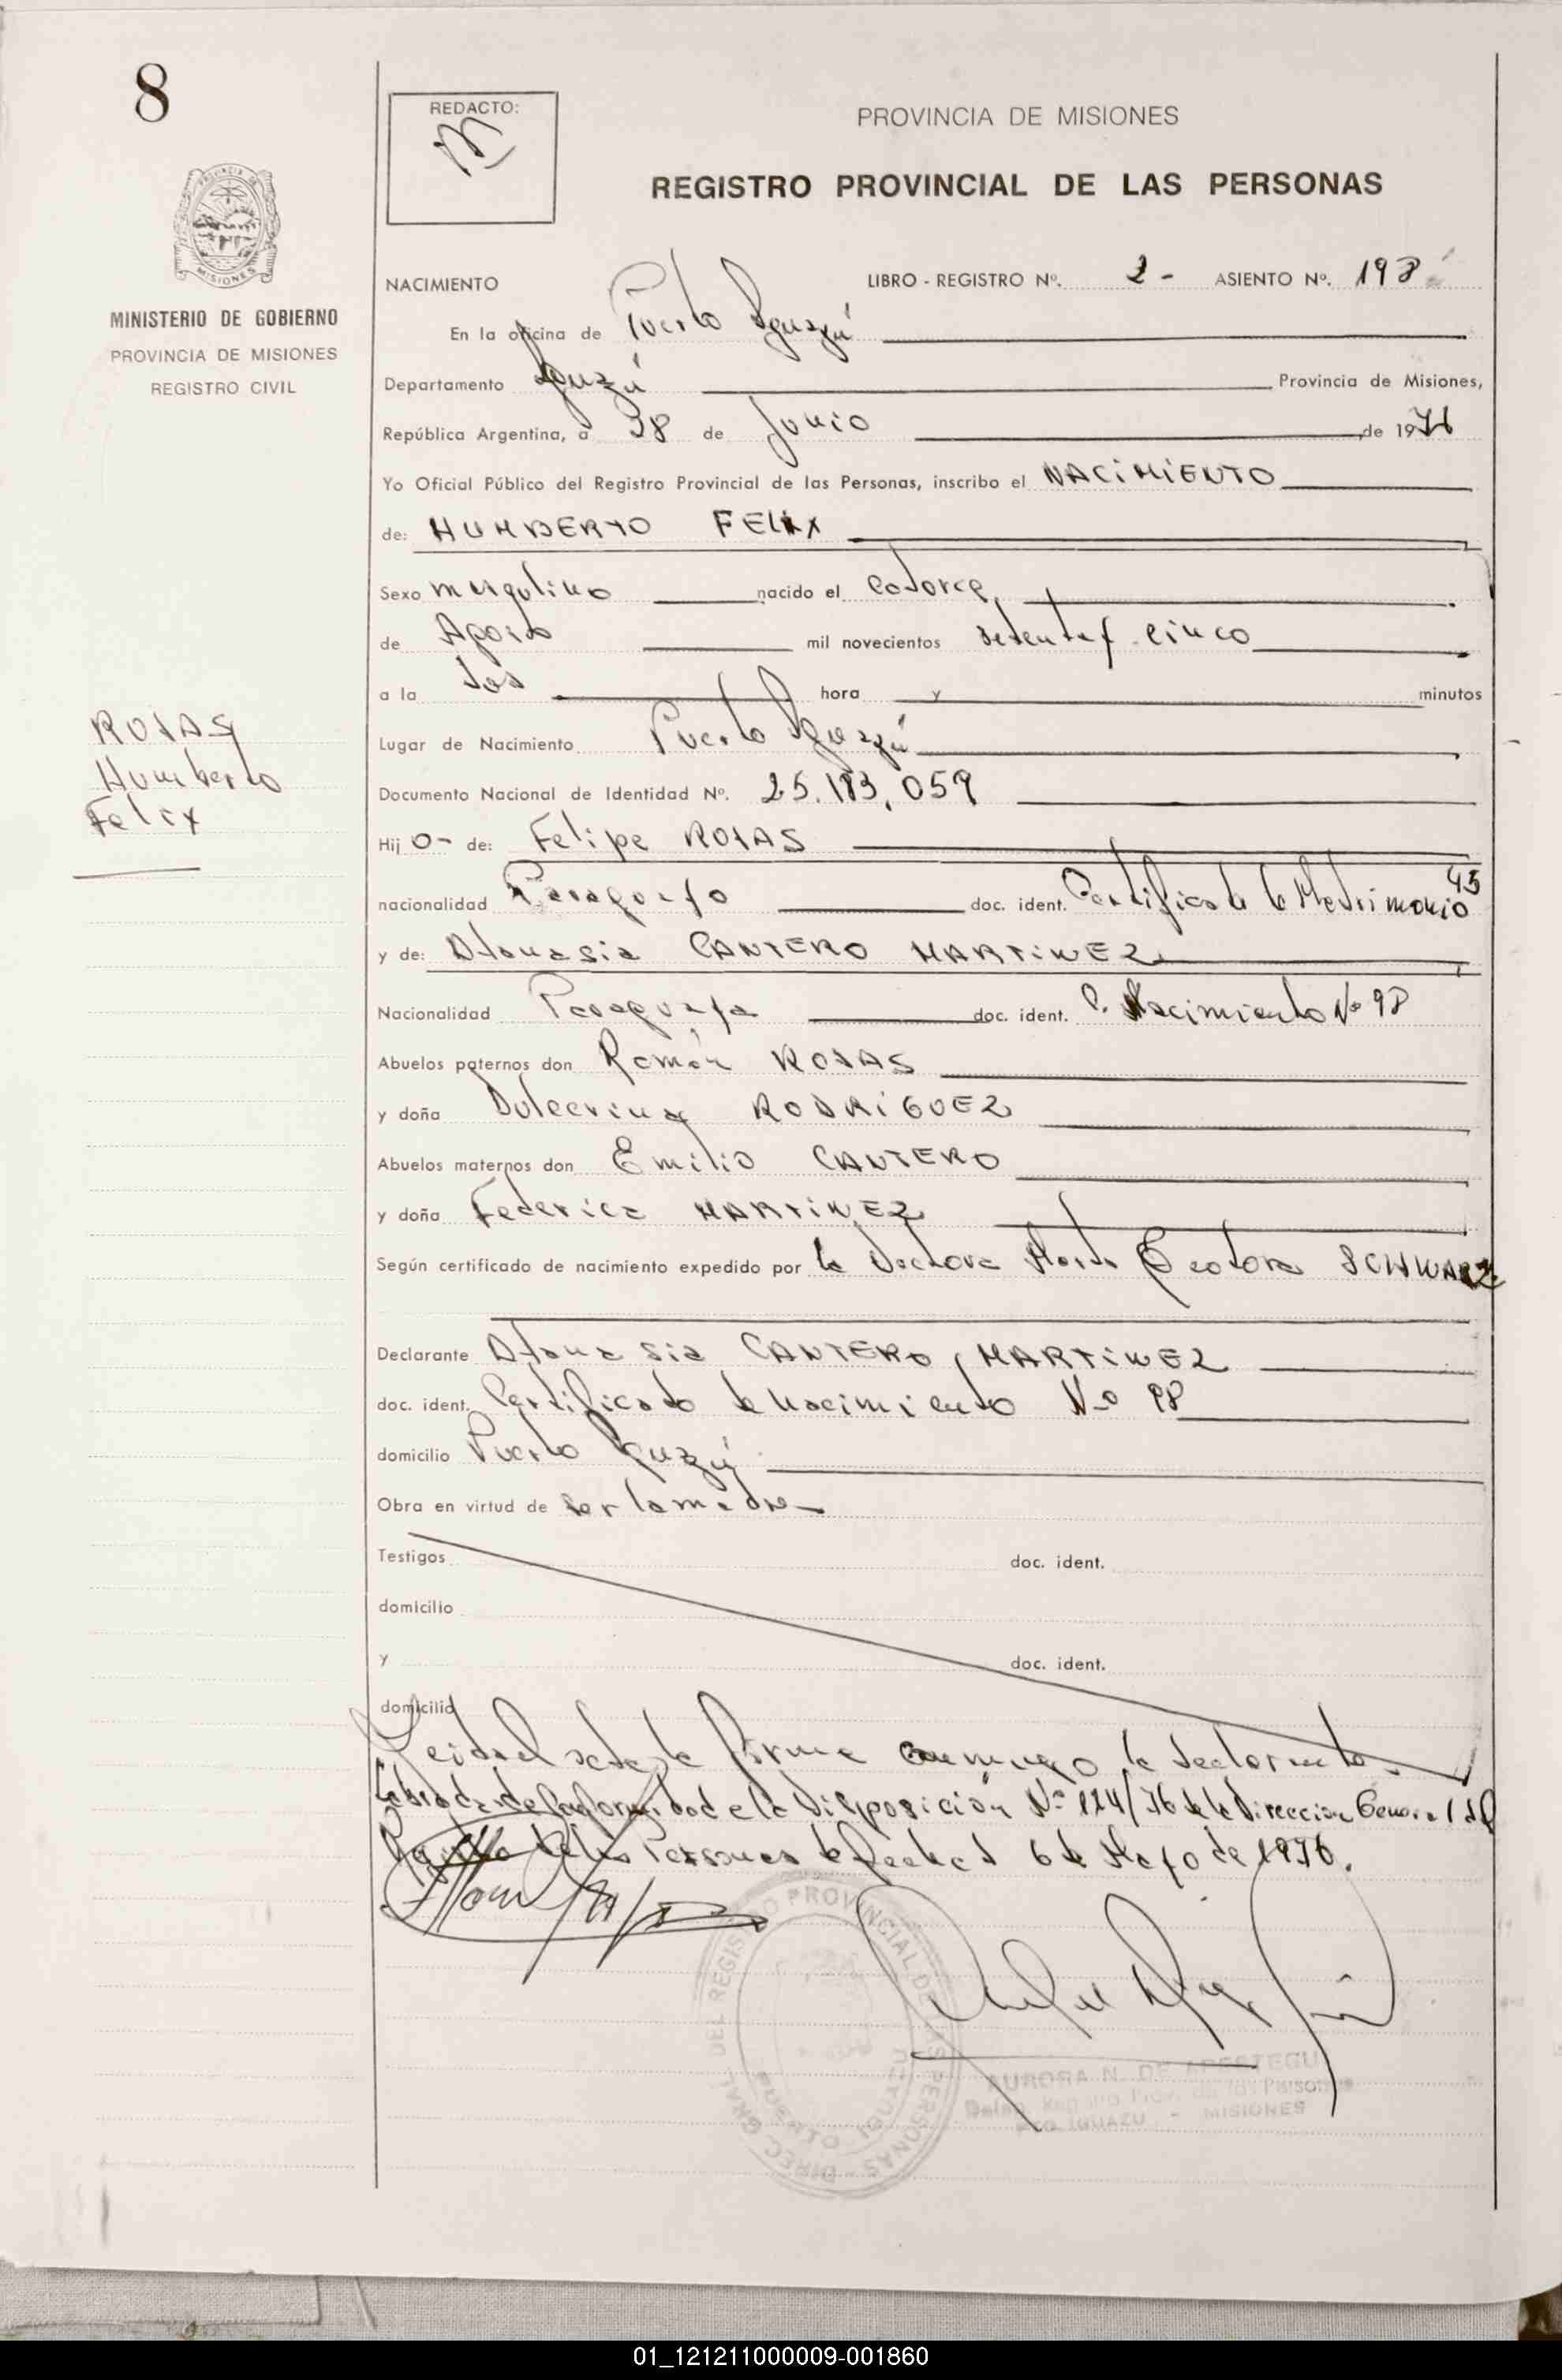 8
REDACTO:
PROVINCIA DE MISIONES
REGISTRO PROVINCIAL DE LAS PERSONAS
MISIONES
MINISTERIO DE GOBIERNO
PROVINCIA DE MISIONES
REGISTRO CIVIL
NACIMIENTO LIBRO - REGISTRO Nº. 2 - ASIENTO Nº. 198
En la oficina de Puerto Iguazú
Departamento Iguazú Provincia de Misiones,
República Argentina, a 28 de Junio de 1976
Yo Oficial Público del Registro Provincial de las Personas, inscribo el NACIMIENTO
de: HUMBERTO FELIX
Sexo masculino nacido el catorce
de Agosto mil novecientos setenta y cinco
a la dos hora y minutos
ROJAS
Humberto
Felix
Lugar de Nacimiento Puerto Iguazú
Documento Nacional de Identidad Nº. 25.183.059
Hij o- de: Felipe ROJAS
nacionalidad Paraguayo doc. ident. Certificado de Matrimonio 45
y de: Atanasia CANTERO MARTINEZ
Nacionalidad Paraguaya doc. ident. C. Nacimiento Nº 98
Abuelos paternos don Román ROJAS
y doña RODRIGUEZ
Abuelos maternos don Emilio CANTERO
y doña Federica MARTINEZ
Según certificado de nacimiento expedido por la Doctora Marta Teodora SCHWARZ
Declarante Atanasia CANTERO MARTINEZ
doc. ident. Certificado de Nacimiento Nº 98
domicilio Puerto Iguazú
Obra en virtud de ser la madre
Testigos doc. ident.
domicilio
y doc. ident.
domicilio
Leida el acta la firma conmigo la declarante.
Labrada de conformidad de la Disposición Nº 114/76 de la Dirección General del
Registro de las Personas de fecha 6 de Mayo de 1976.
DIREC. GRAL. DEL REGISTRO PROVINCIAL DE LAS PERSONAS
PUERTO IGUAZU
AURORA N. DE APESTEGUI
Deleg. Registro Prov. de las Personas
PTO. IGUAZU - MISIONES
01_121211000009-001860